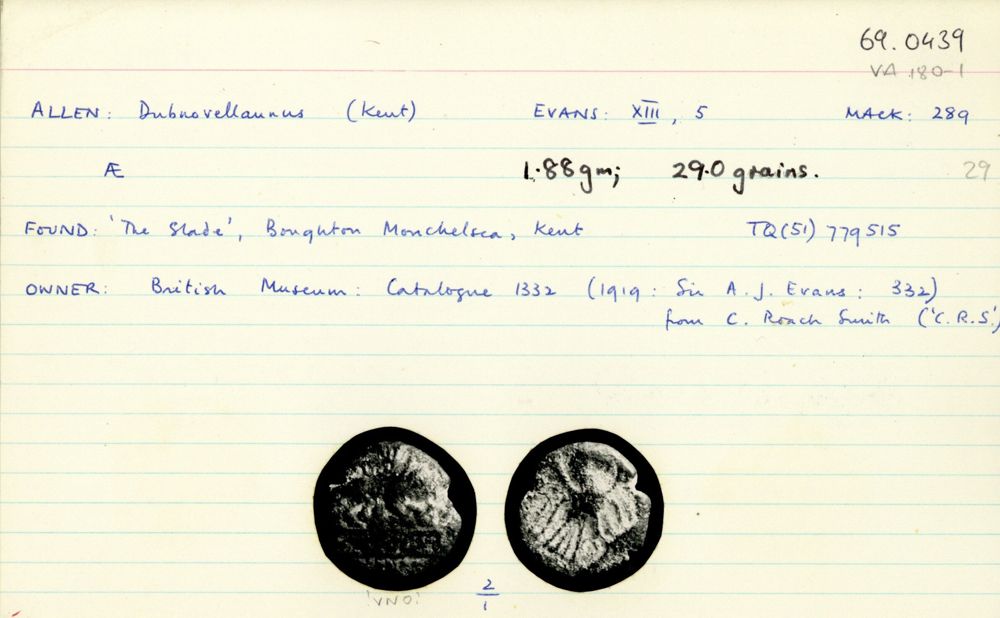 69.0439
VA 180-1
ALLEN: Dubnovellaunus (Kent) EVANS: XIII, 5 MACK: 289
Æ 1.88gm; 29.0 grains. 29
FOUND: 'The Slade', Boughton Monchelsea, Kent TQ(51) 779515
OWNER: British Museum: Catalogue 1332 (1919: Sir A.J. Evans: 332)
from C. Roach Smith ('C.R.S.')
2
1